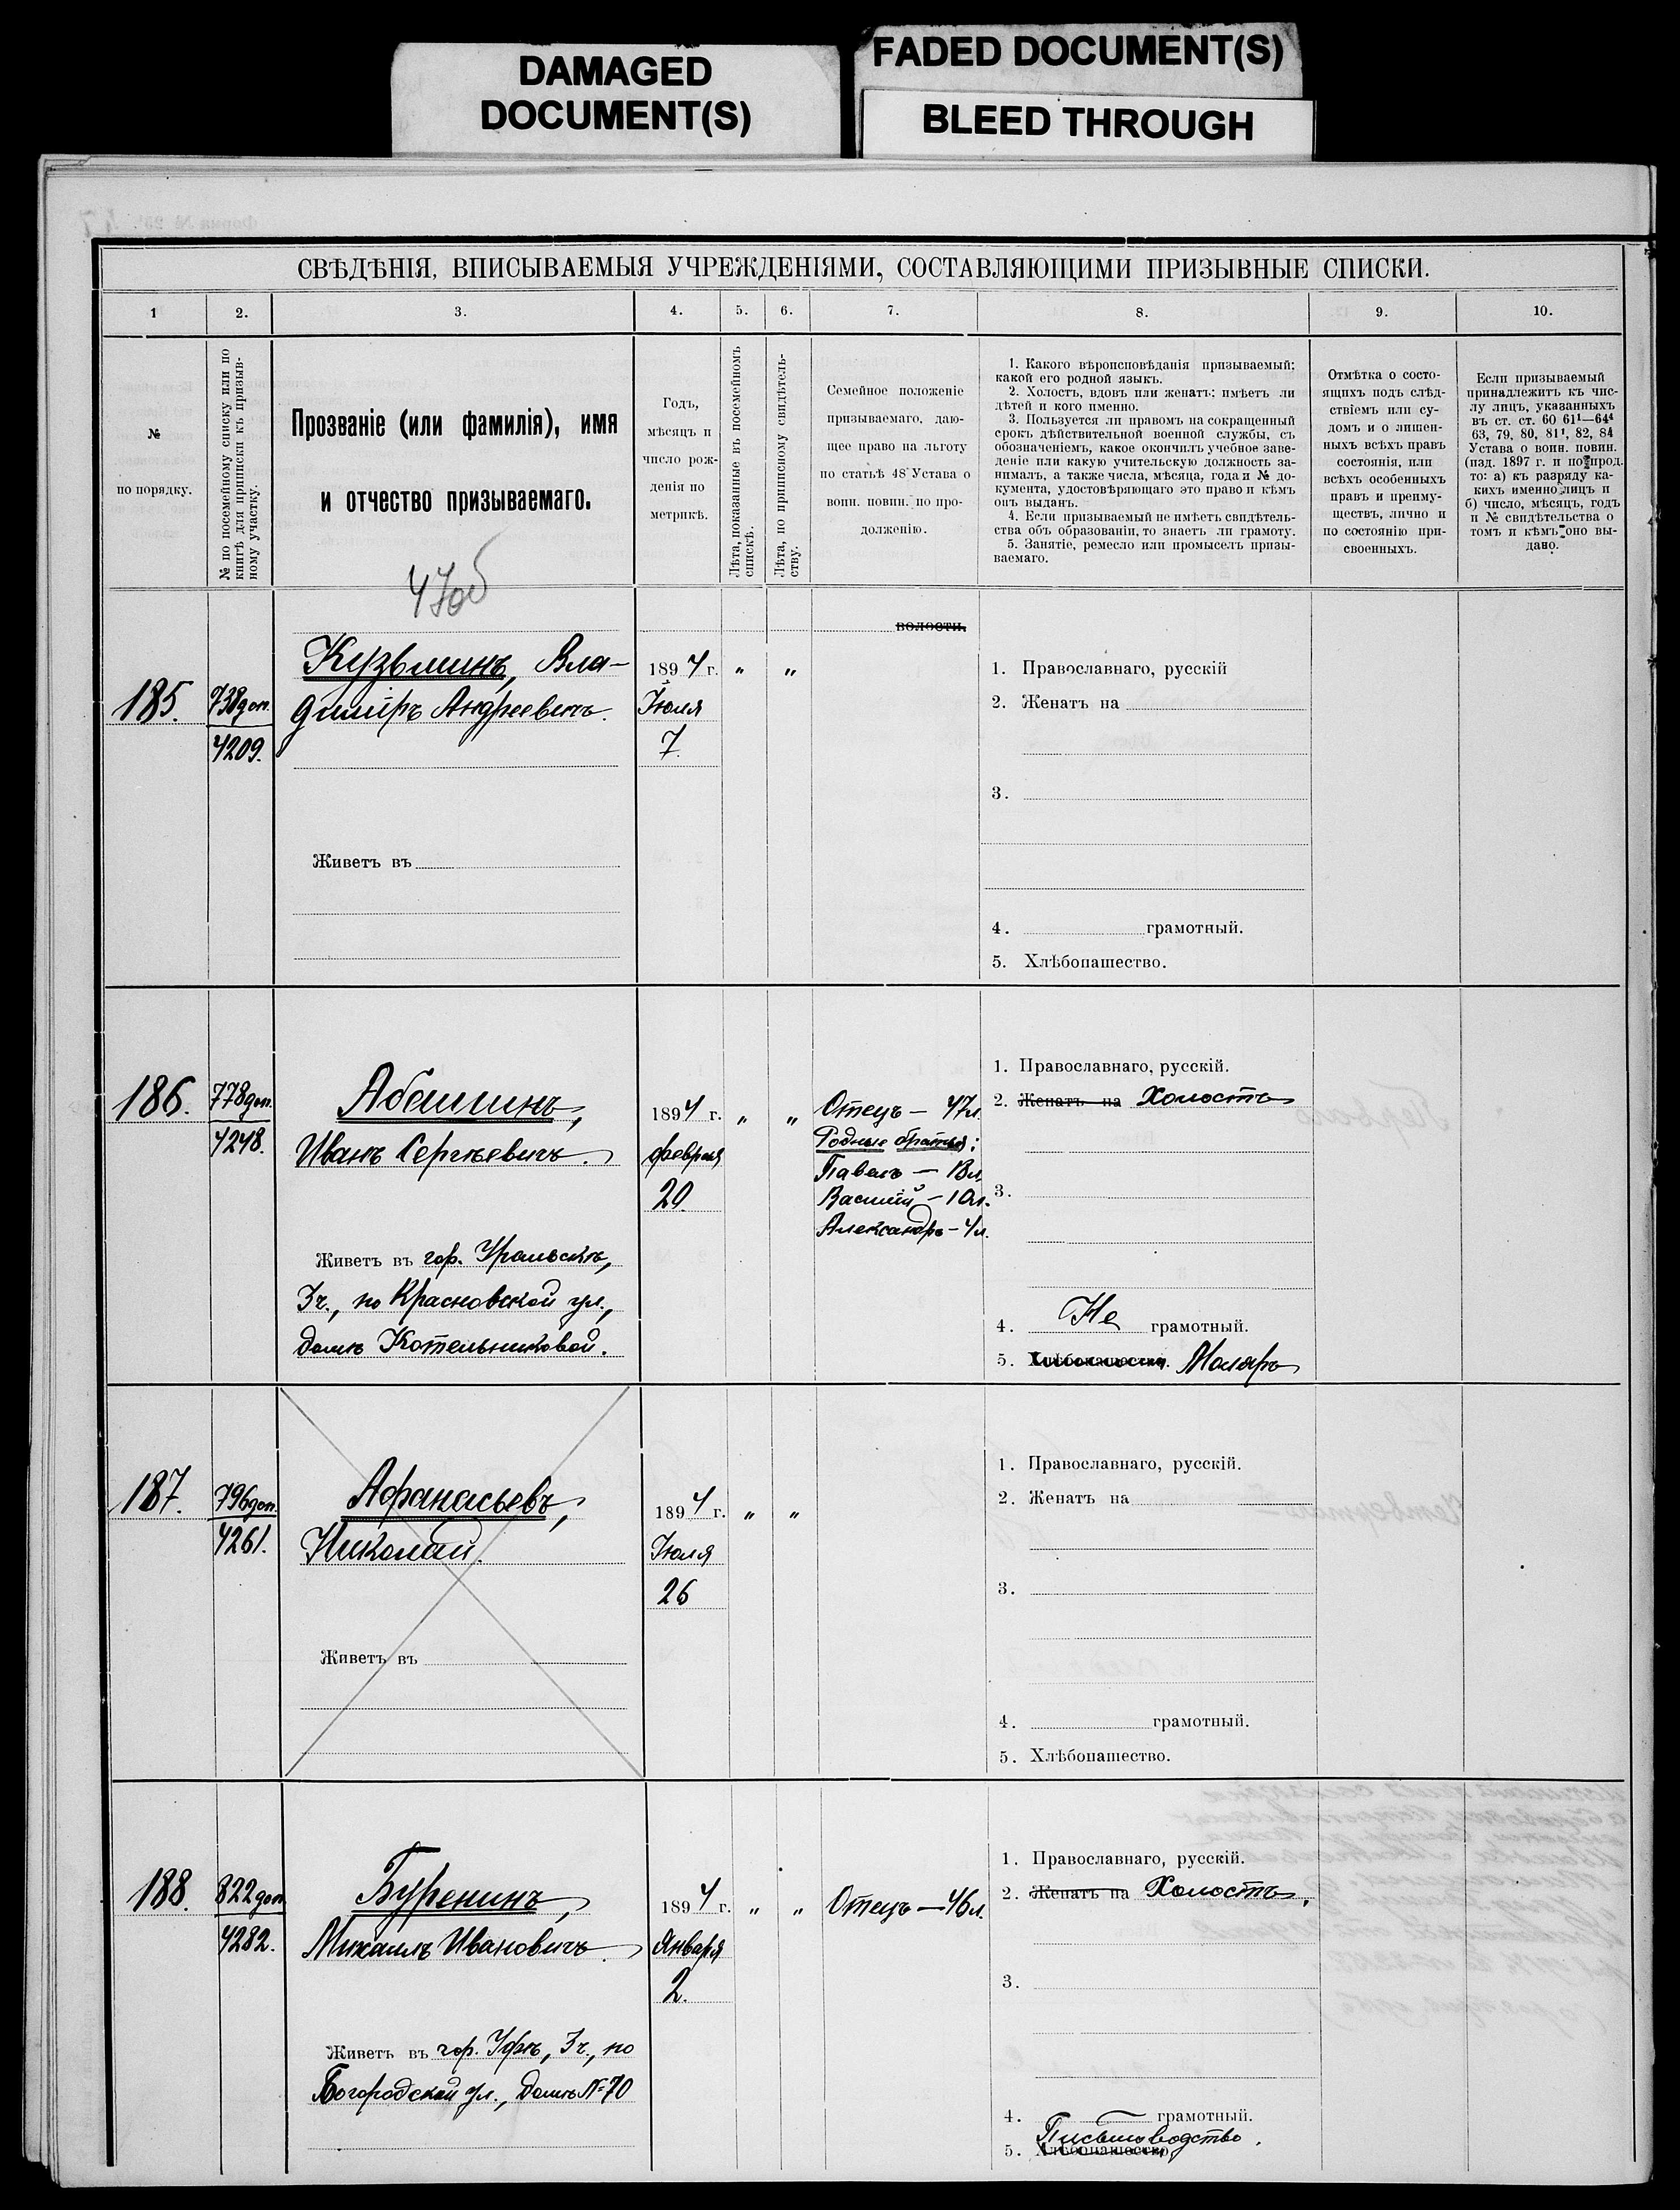 DAMAGED
DOCUMENT(S)
FADED DOCUMENT(S)
BLEED THROUGH
СВѢДѢНІЯ, ВПИСЫВАЕМЫЯ УЧРЕЖДЕНІЯМИ, СОСТАВЛЯЮЩИМИ ПРИЗЫВНЫЕ СПИСКИ.
1 2. 3. 4. 5. 6. 7. 8. 9. 10.
№
по порядку.
№ по посемейному списку или по
книгѣ для приписки къ призыв-
ному участку.
Прозваніе (или фамилія), имя
и отчество призываемаго.
Годъ,
мѣсяцъ и
число рож-
денія по
метрикѣ.
Лѣта, показанные въ посемейномъ
спискѣ.
Лѣта, по приписному свидѣтель-
ству.
Семейное положеніе
призываемаго, даю-
щее право на льготу
по статьѣ 48 Устава о
воин. повин. по про-
долженію.
1. Какого вѣроисповѣданія призываемый;
какой его родной языкъ.
2. Холостъ, вдовъ или женатъ: имѣетъ ли
дѣтей и кого именно.
3. Пользуется ли правомъ на сокращенный
срокъ дѣйствительной военной службы, съ
обозначеніемъ, какое окончилъ учебное заве-
деніе или какую учительскую должность за-
нималъ, а также числа, мѣсяца, года и № до-
кумента, удостовѣряющаго это право и кѣмъ
онъ выданъ.
4. Если призываемый не имѣетъ свидѣтель-
ства объ образованіи, то знаетъ ли грамоту.
5. Занятіе, ремесло или промыселъ призы-
ваемаго.
Отмѣтка о состо-
ящихъ подъ слѣд-
ствіемъ или су-
домъ и о лишен-
ныхъ всѣхъ правъ
состоянія, или
всѣхъ особенныхъ
правъ и преиму-
ществъ, лично и
по состоянію при-
своенныхъ.
Если призываемый
принадлежитъ къ чис-
лу лицъ, указанныхъ
въ ст. ст. 60 61¹—64⁴
63, 79, 80, 81¹, 82, 84
Устава о воин. повин.
(изд. 1897 г. и по прод.
то: а) къ разряду ка-
кихъ именно лицъ и
б) число, мѣсяцъ, годъ
и № свидѣтельства о
томъ и кѣмъ оно вы-
дано.
47об
волости.
185. 738доп.
4209.
Кузьминъ, Вла-
диміръ Андреевичъ.
1894 г. " "
Іюля
7.
Живетъ въ
1. Православнаго, русскій
2. Женатъ на
3.
4. грамотный.
5. Хлѣбопашество.
186. 778доп.
4248.
Абашинъ,
Иванъ Сергѣевичъ.
1894 г. " "
февраля
20.
Живетъ въ гор. Уральскѣ,
3ч., по Красновской ул.,
домъ Котельниковой.
Отецъ — 47л.
Родные братья:
Павелъ — 13л.
Василій — 10л.
Александръ — 4л.
1. Православнаго, русскій.
2. Женатъ на Холостъ
3.
4. Не грамотный.
5. Хлѣбопашество. Маляръ
187. 796доп.
4261.
Афанасьевъ,
Николай.
1894 г. " "
Іюля
26
Живетъ въ
1. Православнаго, русскій.
2. Женатъ на
3.
4. грамотный.
5. Хлѣбопашество.
188. 822доп.
4282.
Буренинъ,
Михаилъ Ивановичъ
1894 г. " "
Января
2.
Живетъ въ гор. Уфѣ, 3ч., по
Богородской ул., домъ №70
Отецъ — 46л.
1. Православнаго, русскій.
2. Женатъ на Холостъ.
3.
4. грамотный.
Письмоводство.
5. Хлѣбопашество